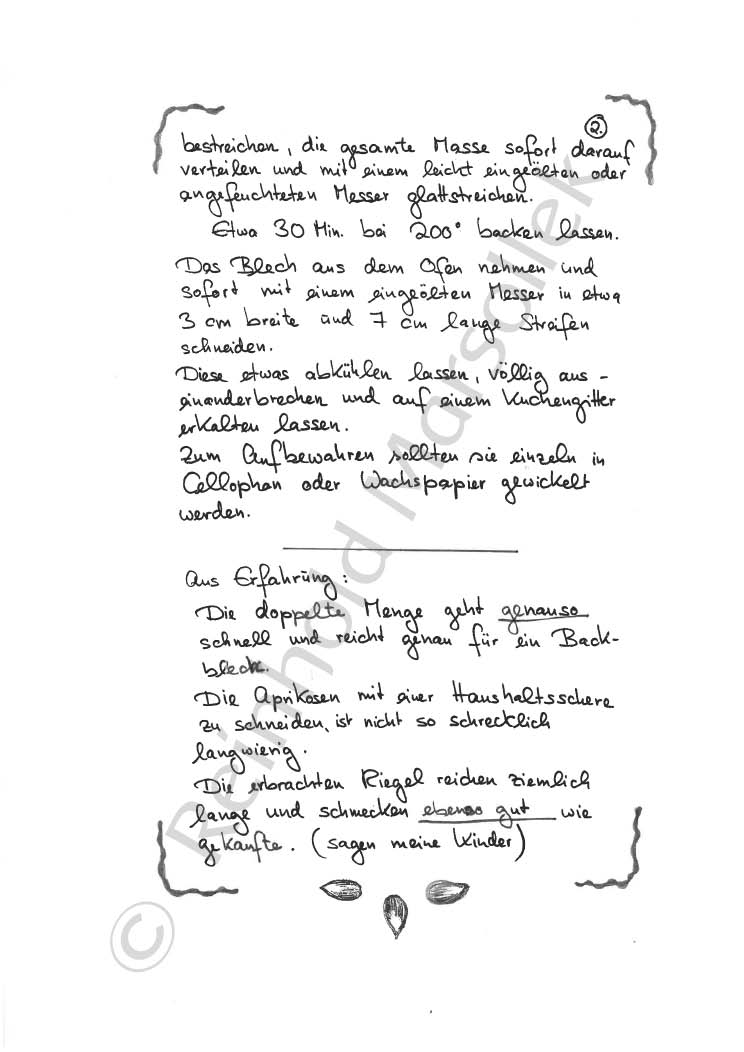 2.
bestreichen, die gesamte Masse sofort darauf
verteilen und mit einem leicht eingeölten oder
angefeuchteten Messer glattstreichen.
Etwa 30 Min. bei 200° backen lassen.
Das Blech aus dem Ofen nehmen und
sofort mit einem eingeölten Messer in etwa
3 cm breite und 7 cm lange Streifen
schneiden.
Diese etwas abkühlen lassen, völlig aus-
einanderbrechen und auf einem Kuchengitter
erkalten lassen.
Zum Aufbewahren sollten sie einzeln in
Cellophan oder Wachspapier gewickelt
werden.
Aus Erfahrung:
Die doppelte Menge geht genauso
schnell und reicht genau für ein Back-
blech.
Die Aprikosen mit einer Haushaltsschere
zu schneiden, ist nicht so schrecklich
langwierig.
Die erbrachten Riegel reichen ziemlich
lange und schmecken ebenso gut wie
gekaufte. (sagen meine Kinder)
© Reinhold Marsollek